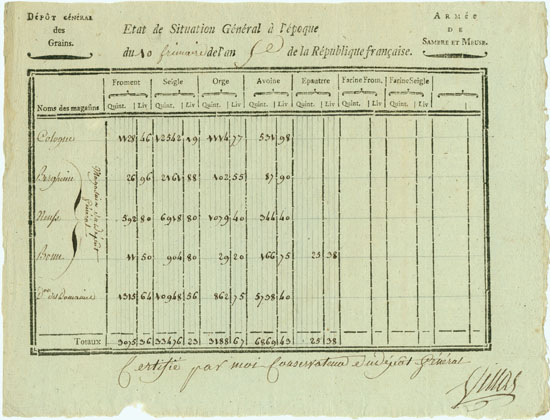 DÉPÔT GÉNÉRAL
des
Grains.
Etat de Situation Général à l'époque
du 10 frimaire de l'an 5e de la République française.
ARMÉE
DE
SAMBRE ET MEUSE.
Noms des magasins Froment Seigle Orge Avoine Epautrre Farine From. Farine Seigle
Quint. Liv Quint. Liv Quint. Liv Quint. Liv Quint. Liv Quint. Liv Quint. Liv
Cologne 1128 46 12542 19 1114 77 531 98
Bergheim 26 96 2161 88 102 55 87 90
Magasins du Dépôt général
Neuss 592 80 6918 80 1079 40 344 40
Bonn 11 50 904 80 29 20 166 75 25 38
des Domaines 1315 64 10948 56 862 75 5738 40
Totaux 3075 36 33476 23 3188 67 6869 43 25 38
Certifié par moi Conservateur du dépôt général